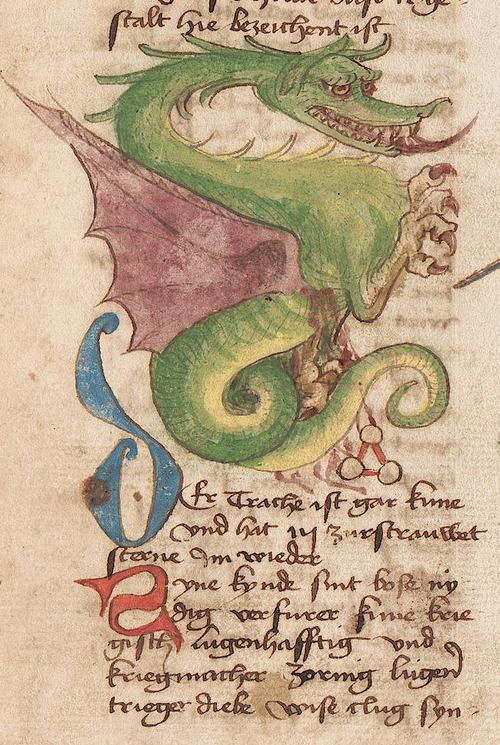 stalt hie bezeichent ist
Der Trache ist gar kune
vnd hat iij zurstrauwet
sterne Im wieder
Syne kynde sint bose ny
dig verfurer kune krie
gisch lugenhafftig vnd
kriegmacher zornig lugen
trieger diebe wise clug syn-